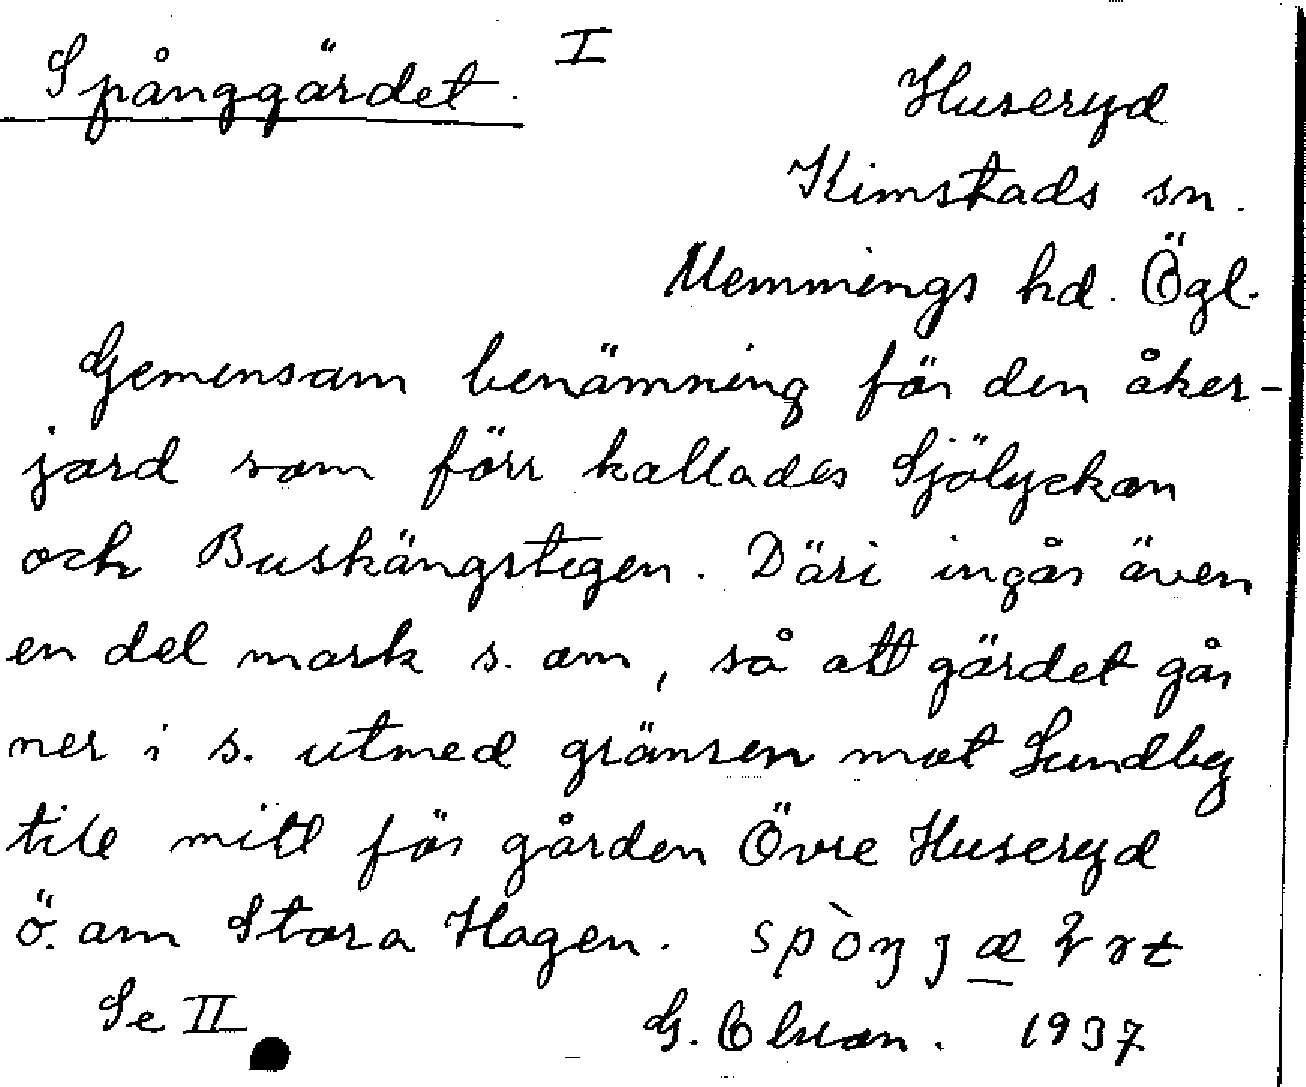 Spånggärdet. I
Huseryd
Kimstads sn.
Memmings hd. Ögl.
Gemensam benämning för den åker-
jord som förr kallades Sjölyckan
och Buskängstegen. Däri ingår även
en del mark s. om, så att gärdet går
ner i s. utmed gränsen mot Sundby
till mitt för gården Övre Huseryd
ö. om Stora Hagen.
Se II
G. 1937